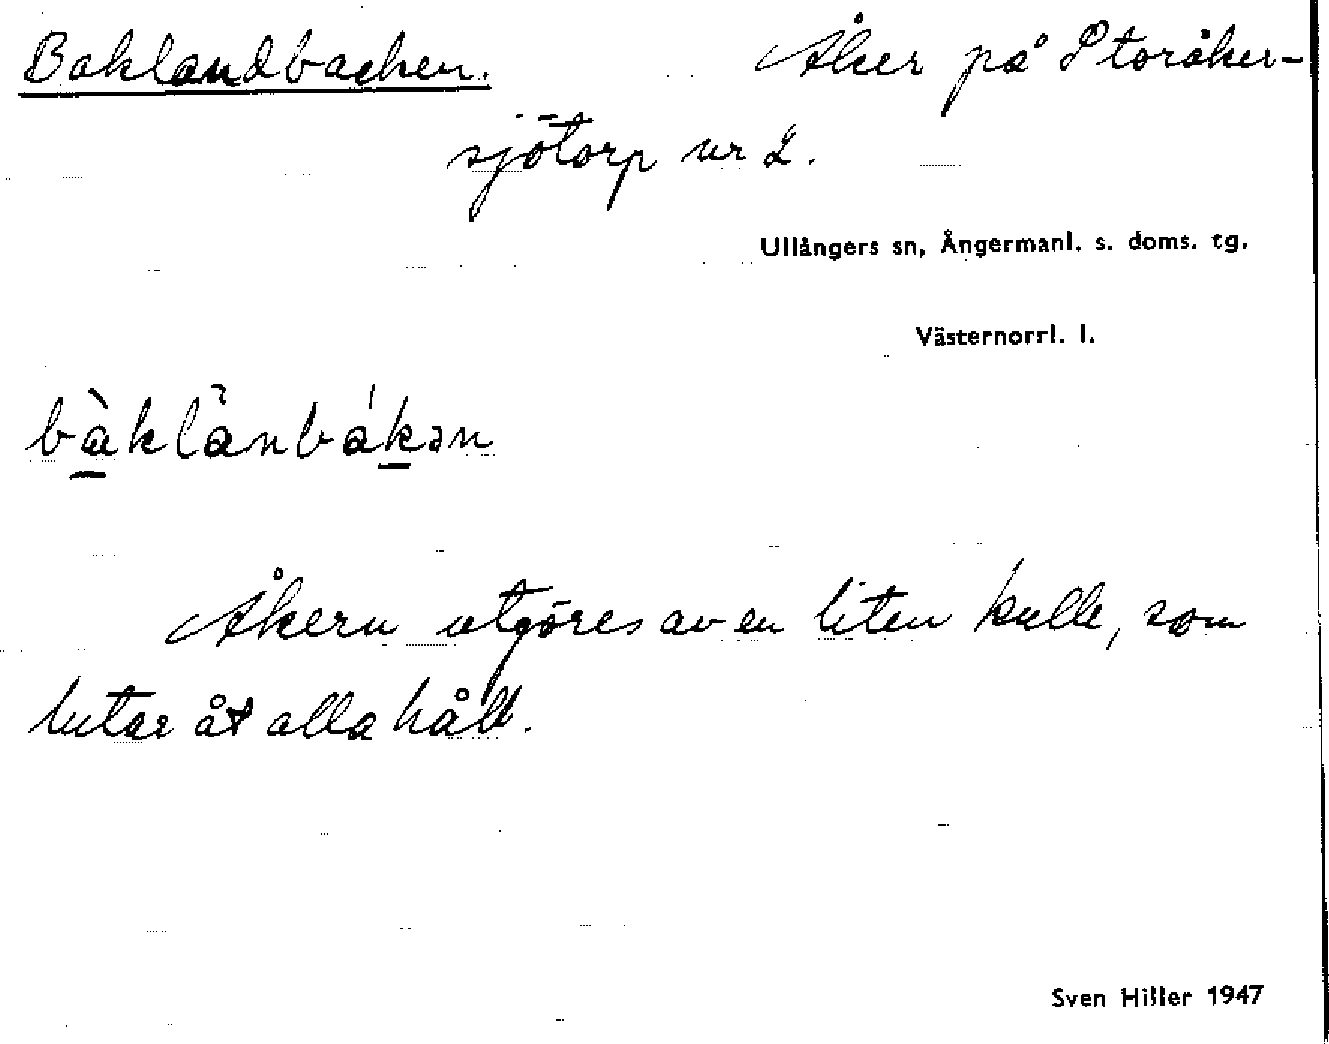 Baklandbacken. Åker på Storåker-
sjötorp nr 2.
Ullångers sn, Ångermanl. s. doms. tg.
Västernorrl. l.
bàklànbákən
Åkern utgöres av en liten kulle, som
lutar åt alla håll.
Sven Hiller 1947